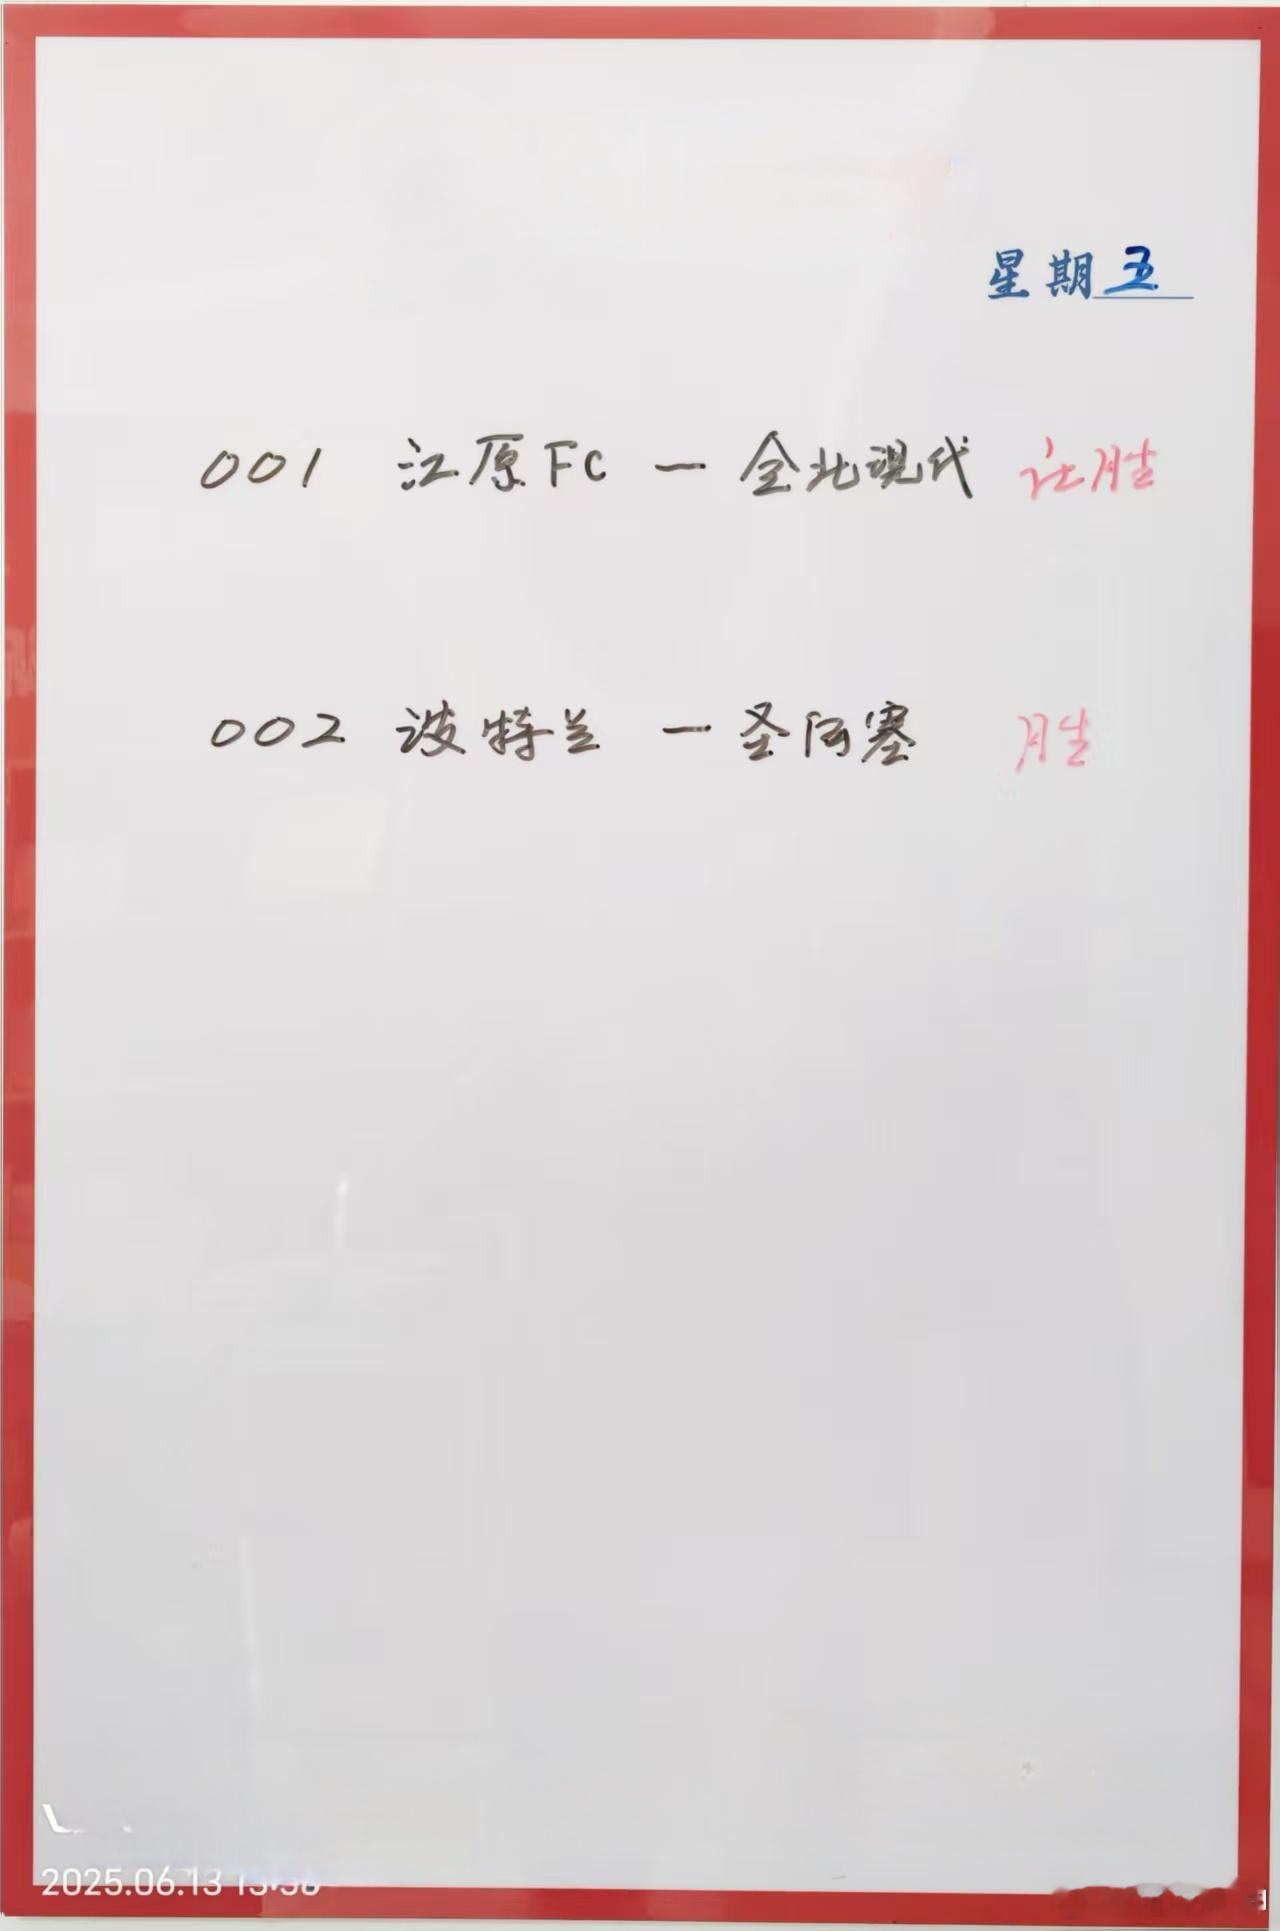 星期五
001 江原FC — 全北现代 让胜
002 波特兰 — 圣何塞 胜
2025.06.13